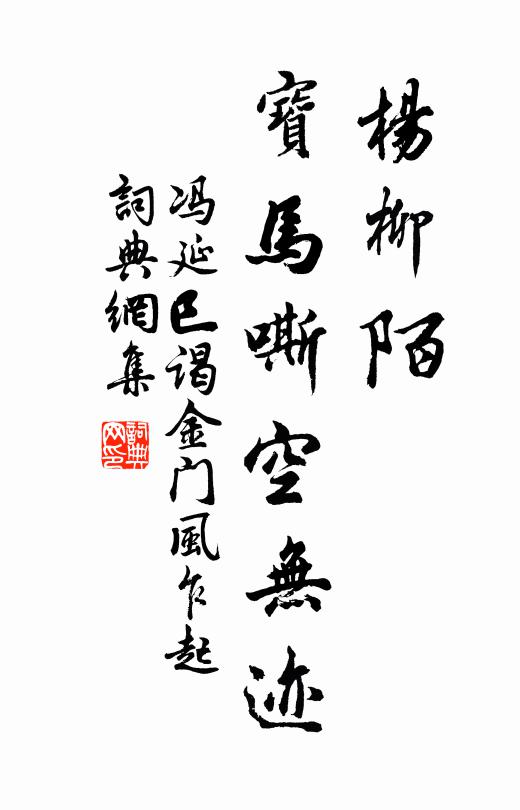 楊柳陌
寶馬嘶空無迹
冯延巳谒金门風乍起
詞典網集
詞典
网印